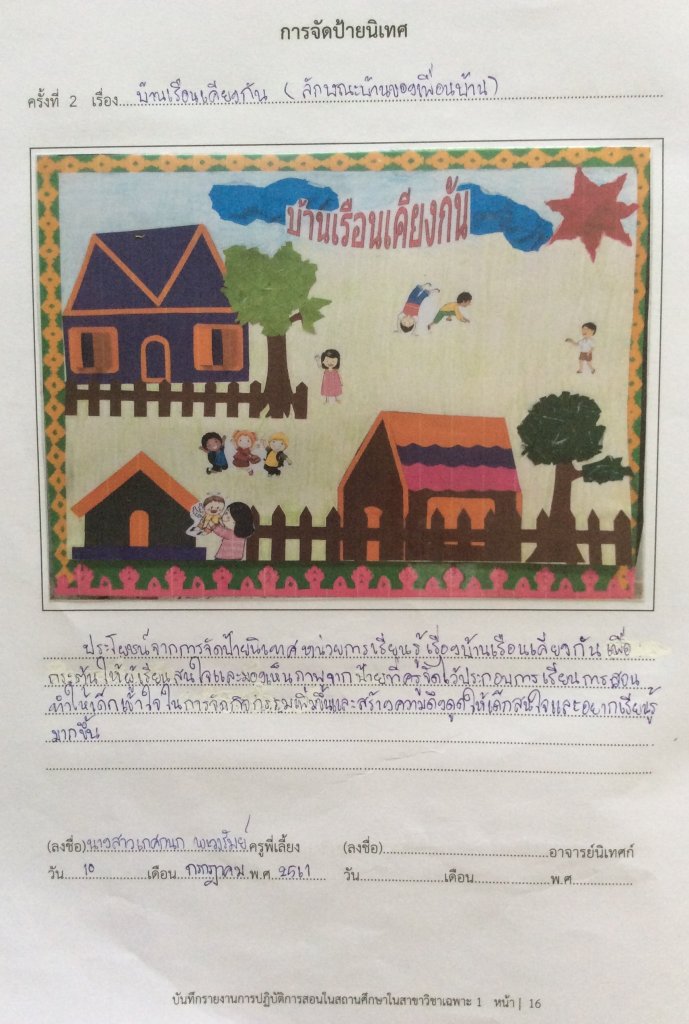 การจัดป้ายนิเทศ
ครั้งที่ 2 เรื่อง บ้านเรือนเคียงกัน (ลักษณะบ้านของเพื่อนบ้าน)
บ้านเรือนเคียงกัน
ประโยชน์จากการจัดป้ายนิเทศ หน่วยการเรียนรู้ เรื่องบ้านเรือนเคียงกัน เพื่อ
กระตุ้นให้ผู้เรียนสนใจและมองเห็นภาพจากป้ายที่ครูจัดไว้ประกอบการเรียนการสอน
ทำให้เด็กเข้าใจในการจัดกิจกรรมเพิ่มขึ้นและสร้างความดึงดูดให้เด็กสนใจและอยากเรียนรู้
มากขึ้น
(ลงชื่อ) นางสาวเกศกนก ครูพี่เลี้ยง (ลงชื่อ) อาจารย์นิเทศก์
วัน 10 เดือน กรกฎาคม พ.ศ 2561 วัน เดือน พ.ศ
บันทึกรายงานการปฏิบัติการสอนในสถานศึกษาในสาขาวิชาเฉพาะ 1 หน้า | 16